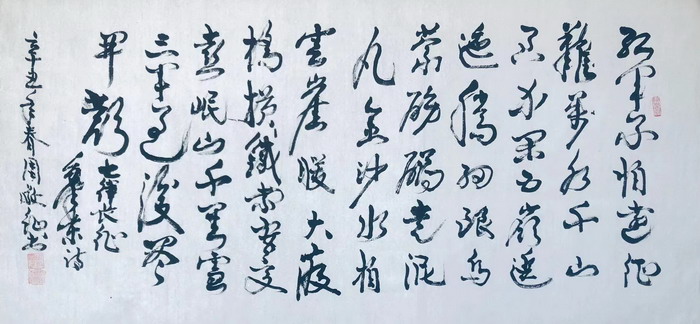 红军不怕远征
難萬水千山
只等闲五岭逶
迤腾细浪乌
蒙磅礴走泥
丸金沙水拍
雲崖暖大渡
橋横鐵索寒更
喜岷山千里雪
三军过後尽
开颜
七律长征
毛泽东诗
辛丑年春周征书